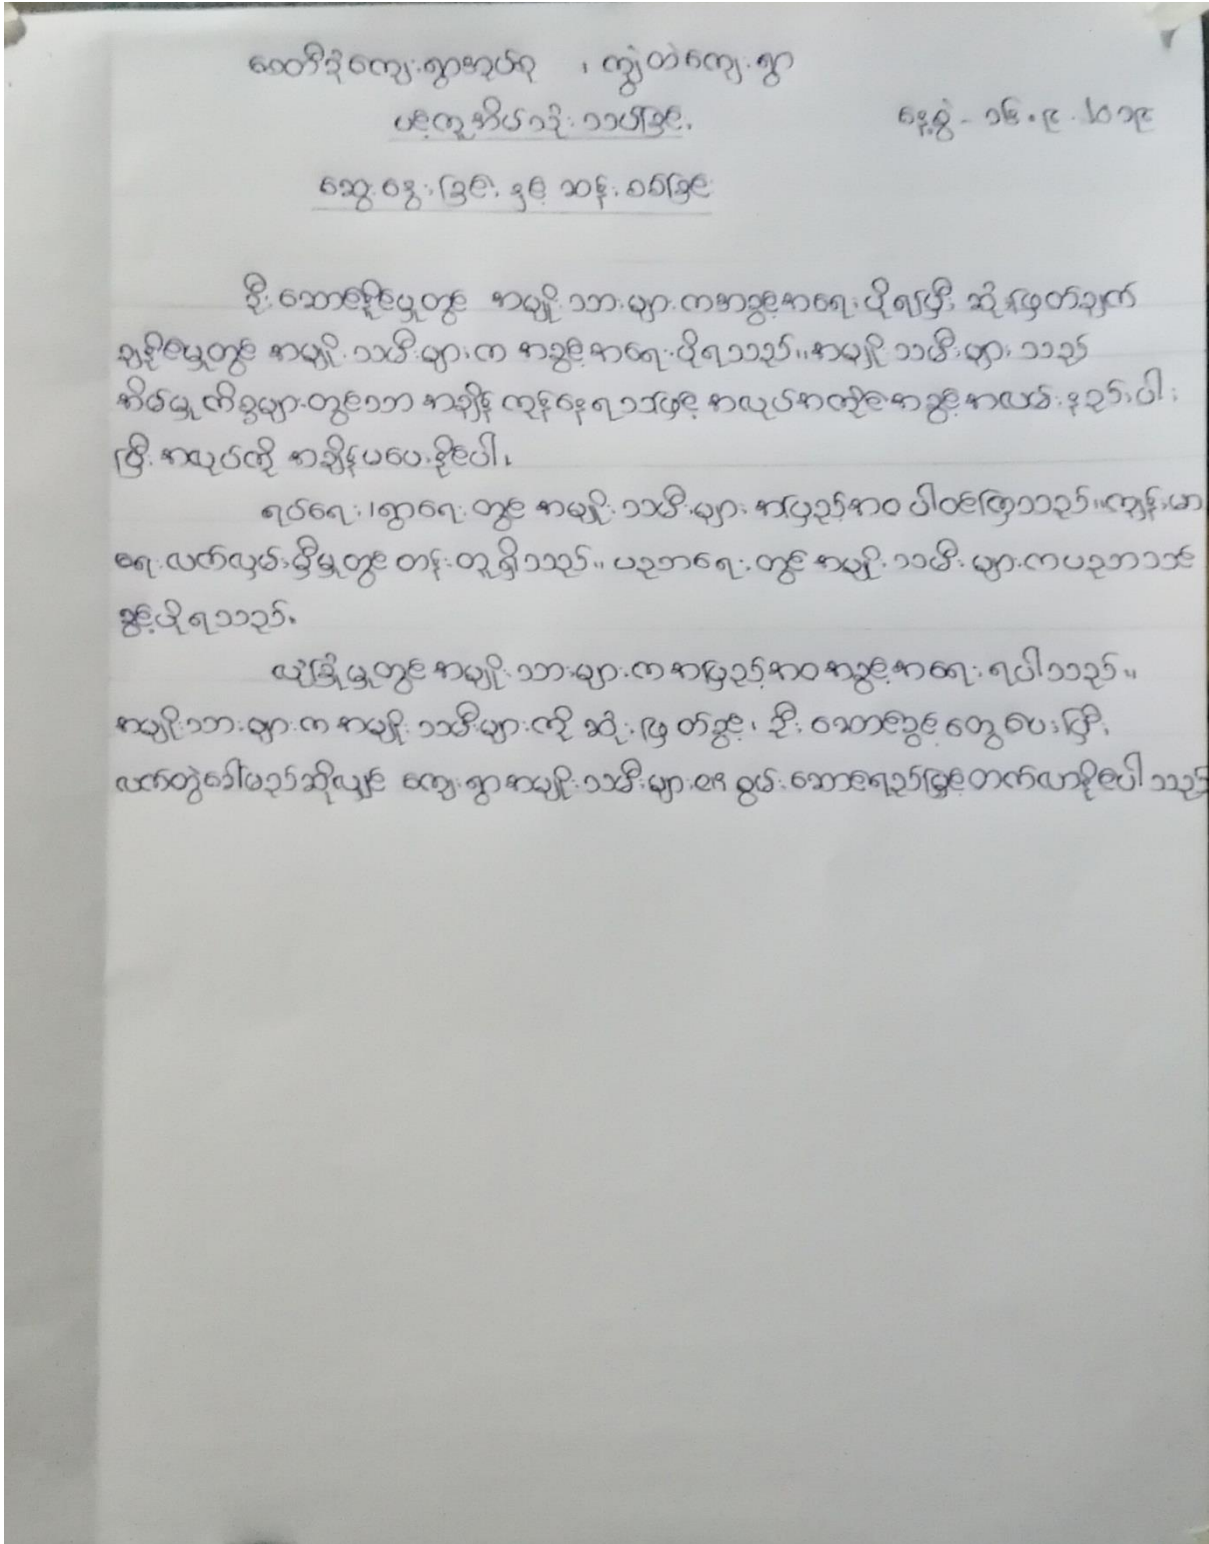 စေတီဒိုကျေးရွာအုပ်စု ၊ ကျွဲတဲကျေးရွာ
ပင့်ကူအိမ်သုံးသပ်ခြင်း
နေ့စွဲ - ၁၆.၉.၂၀၁၉
ဆွေးနွေးခြင်း နှင့် ဆန်းစစ်ခြင်း
ဦးဆောင်နိုင်မှုတွင် အမျိုးသားများကအခွင့်အရေးပိုရပြီး ဆုံးဖြတ်ချက်
ချနိုင်မှုတွင် အမျိုးသမီးများက အခွင့်အရေးပိုရသည်။ အမျိုးသမီးများသည်
အိမ်မှုကိစ္စများတွင်သာ အချိန်ကုန်နေရသဖြင့် အလုပ်အကိုင်အခွင့်အလမ်းနည်းပါး
ပြီး အလုပ်ကို အချိန်မပေးနိုင်ပါ။
ရပ်ရေး၊ရွာရေးတွင် အမျိုးသမီးများ အပြည့်အဝ ပါဝင်ကြသည်။ကျန်းမာ
ရေးလက်လှမ်းမှီမှုတွင် တန်းတူရှိသည်။ ပညာရေးတွင် အမျိုးသမီးများကပညာသင်
ခွင့်ပိုရသည်။
ယုံကြည်မှုတွင် အမျိုးသားများကအပြည့်အဝအခွင့်အရေးရပါသည်။
အမျိုးသားများက အမျိုးသမီးများကို ဆုံးဖြတ်ခွင့်၊ ဦးဆောင်ခွင့်တွေပေးပြီး
လက်တွဲခေါ်မည်ဆိုလျှင် ကျေးရွာအမျိုးသမီးများ၏စွမ်းဆောင်ရည်မြှင့်တက်လာနိုင်ပါသည်